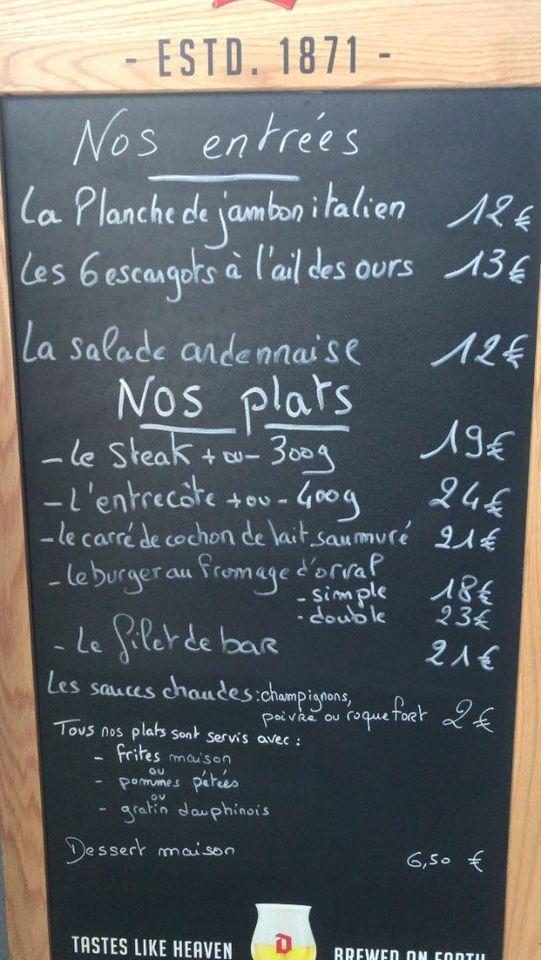 - ESTD. 1871 -
Nos entrées
La Planche de jambon italien 12€
Les 6 escargots à l'ail des ours 13€
La salade ardennaise 12€
Nos plats
- Le Steak + ou - 300g 19€
- L'entrecôte + ou - 400g 24€
- le carré de cochon de lait saumuré 21€
- le burger au fromage d'orval
- simple 18€
- double 23€
- Le filet de bar 21€
Les sauces chaudes : champignons,
poivre ou roquefort 2€
Tous nos plats sont servis avec :
- frites maison
ou
- pommes pétées
ou
- gratin dauphinois
Dessert maison 6,50 €
D
TASTES LIKE HEAVEN BREWED ON EARTH